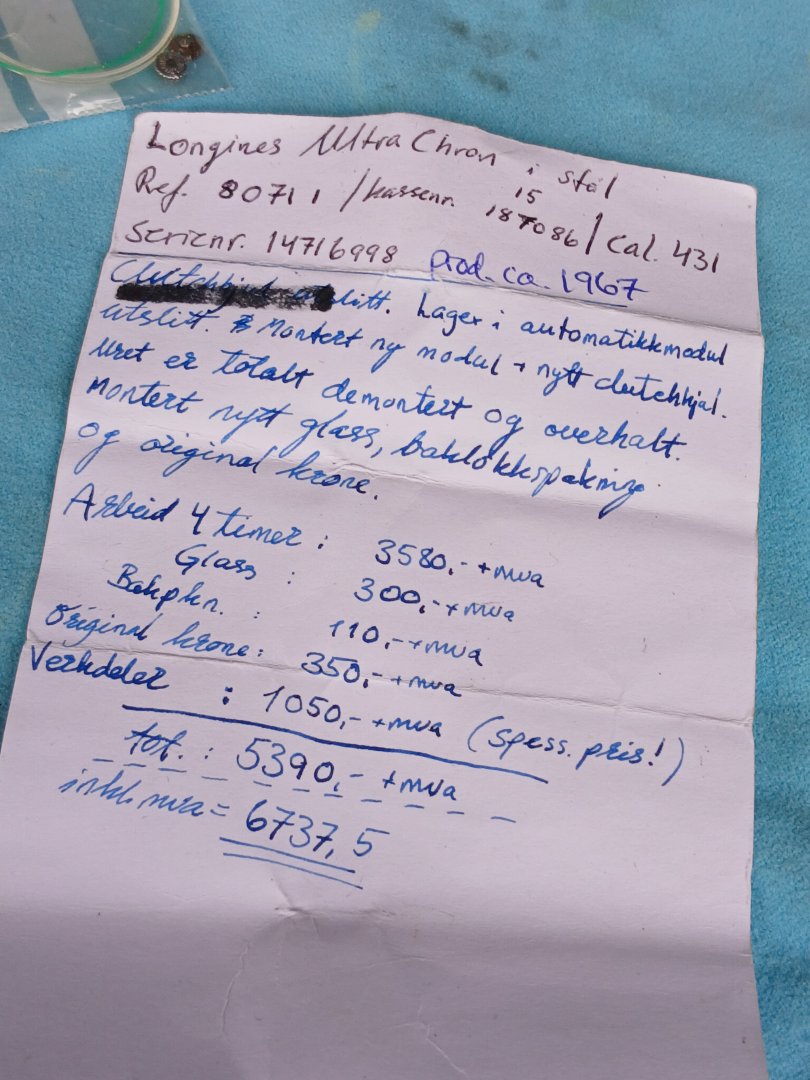 Longines Ultra Chron i stål
Ref. 8071 1 / kassenr. 15 187086 / Cal. 431
Serienr. 14716998 prod. ca. 1967
slitt. Lager i automatikkmodul
utslitt. Montert ny modul + nytt clutchhjul.
Uret er totalt demontert og overhalt.
Montert nytt glass, baklokkspakning
og original krone.
Arbeid 4 timer : 3580,- + mva
Glass : 300,- + mva
Bakpkn. : 110,- + mva
Original krone: 350,- + mva
Verkdeler : 1050,- + mva (spess. pris!)
tot. : 5390,- + mva
inkl. mva = 6737,5